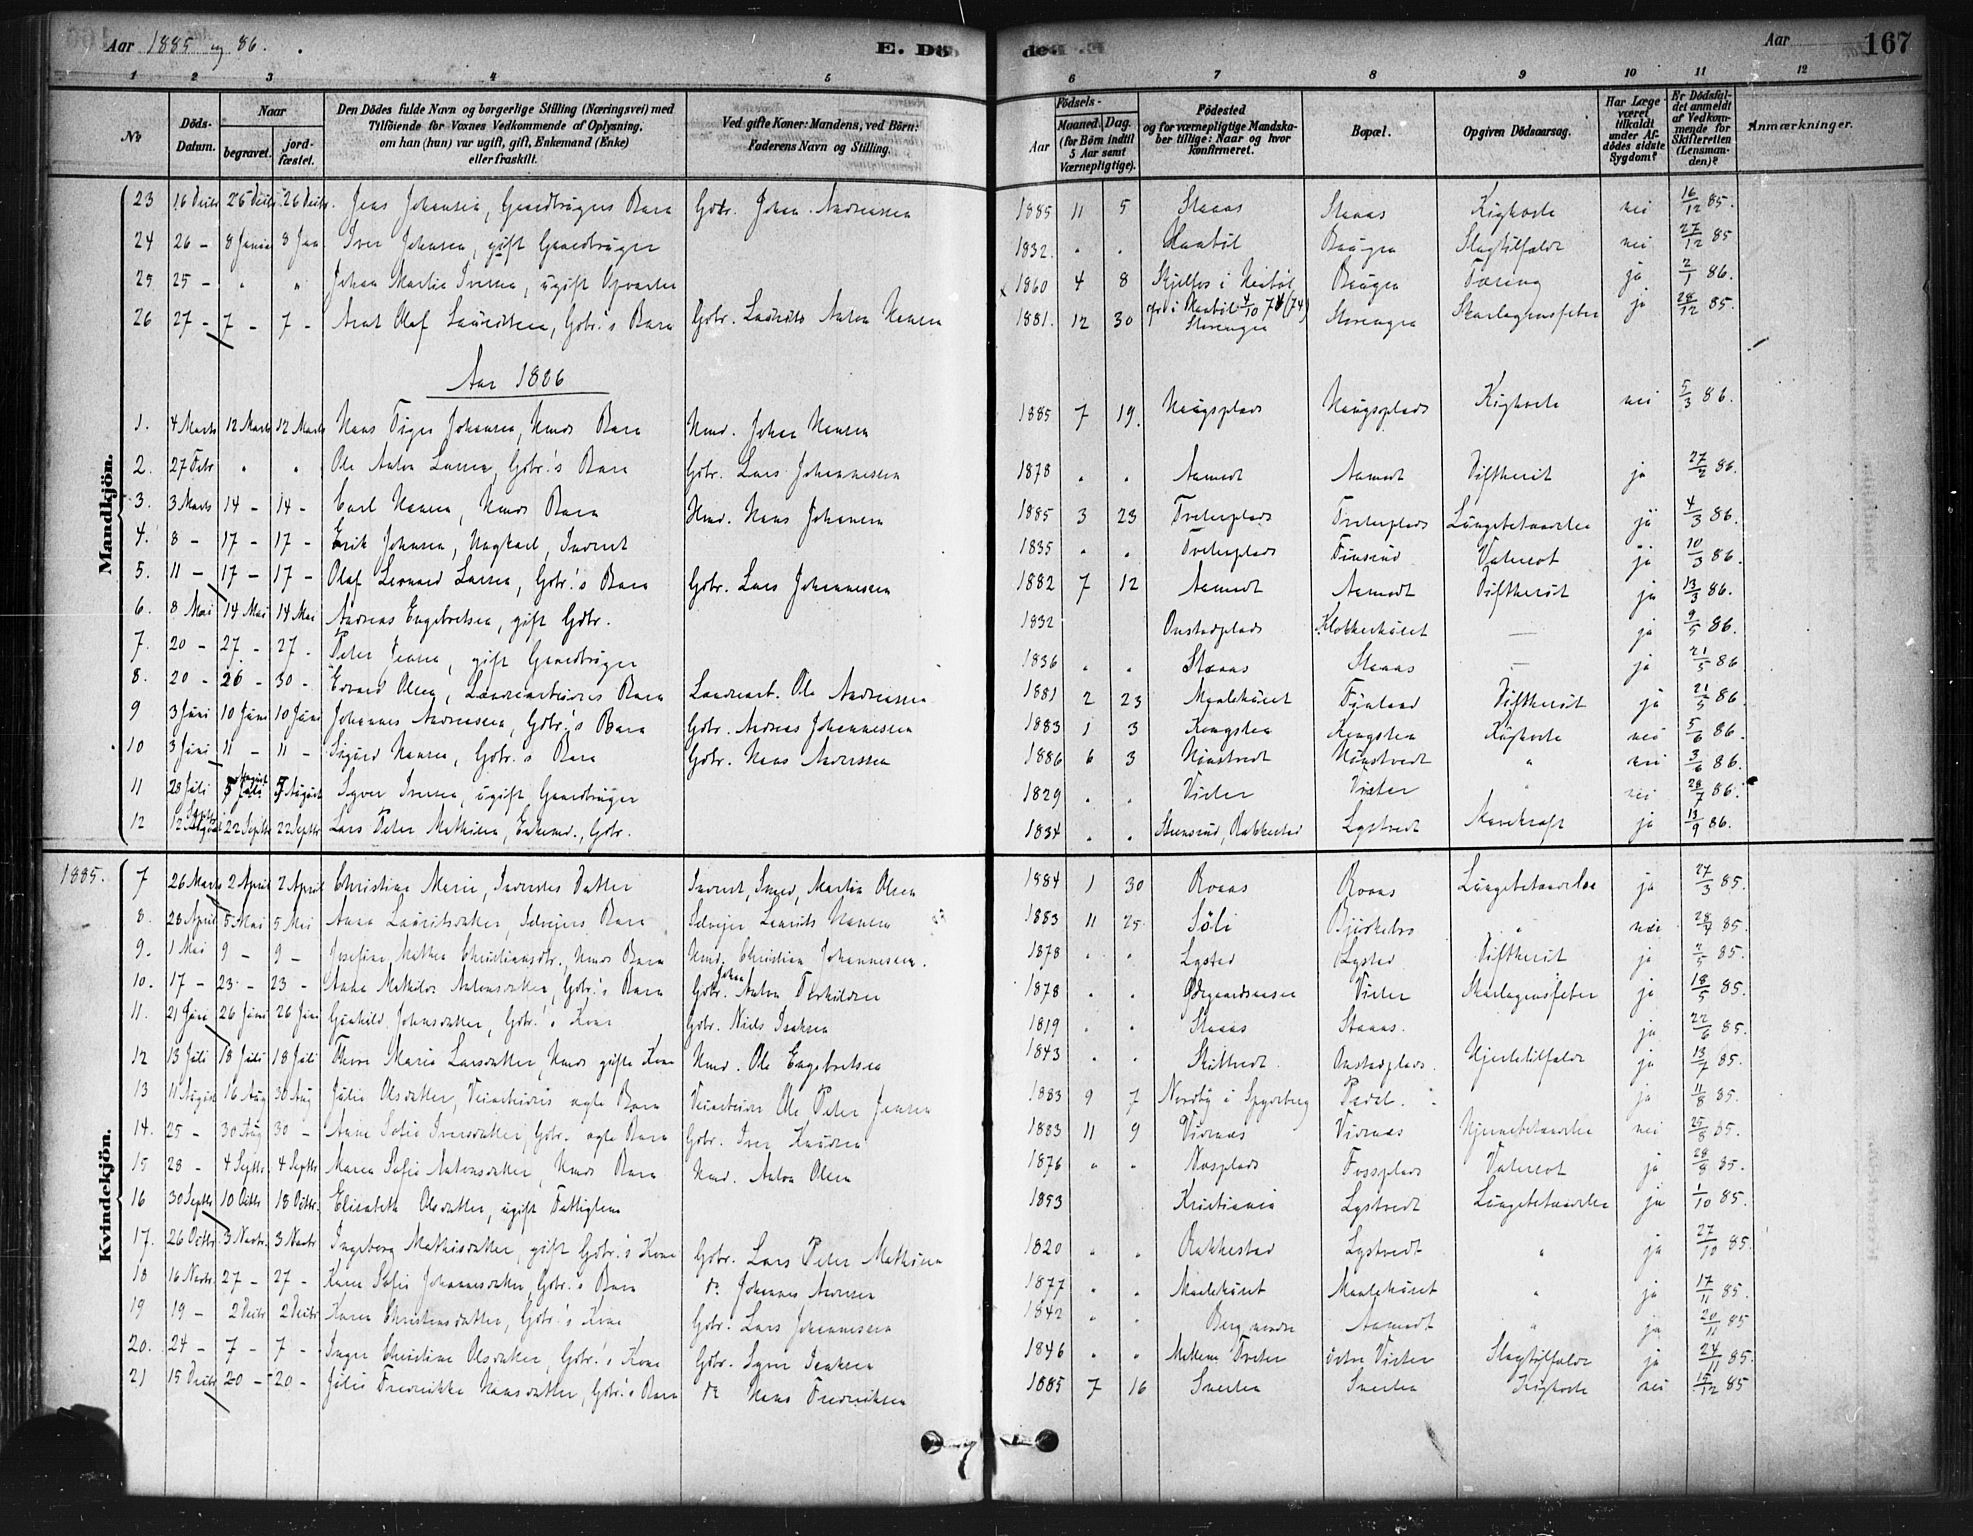 Aar 1885 og 86.
E. Dö
de.
Aar
167
1 2 3 4 5 6 7 8 9 10 11 12
No
Döds-Datum.
Naar
begravet.
jordfæstet.
Den Dödes fulde Navn og borgerlige Stilling (Næringsvei) med Tilföiende for Voxnes Vedkommende af Oplysning, om han (hun) var ugift, gift, Enkemand (Enke) eller fraskilt.
Ved gifte Koner: Mandens, ved Börn: Faderens Navn og Stilling.
Födsels-
Aar
Maaned. Dag.
(for Börn indtil 5 Aar samt Værnepligtige).
Födested og for værnepligtige Mandskaber tillige: Naar og hvor konfirmeret.
Bopæl.
Opgiven Dödsaarsag.
Har Læge været tilkaldt under Afdödes sidste Sygdom?
Er Dödsfaldet anmeldt af Vedkommende for Skifteretten (Lensmanden)?
Anmærkninger.
Mandkjön.
23 16 Decbr 26 Decbr. 26 Decbr. Jens Johansen, Gaardbrugers Barn Gdbr. Johan Andreassen 1885 11 5 Staaas Staaas Kighoste nei 16/12 85.
24 26 - 8 Januar 8 Jan Iver Johnsen, gift Gaardbruger 1832. " " Haabøl Baugen Slagtilfælde nei 27/12 85
25 25 - " " Johan Martin Iversen, ugift 1860 4 8 Skjelfos i Haabøl Baugen Tæring ja 2/1 86.
26 27 - 7 - 7 - Arnt Olaf Lauritsen, Gdbr.'s Barn Gdbr. Laurits Anton Hansen 1881. 12 30 Storengen Storengen Skarlagensfeber ja 28/12 85.
Aar 1886
1. 4 Marts 12 Marts 12 Marts Hans Johansen, Hmds Barn Hmd. Johan Hansen 1885 7 19. Haugsplads Haugsplads Kighoste nei 5/3 86.
2. 27 Febr " " Ole Anton Larsen, Gdbr.'s Barn Gdbr. Lars Johannessen 1878 " " Aamodt Aamodt Diftherit ja 27/2 86.
3. 3 Marts 14 - 14 - Carl Hansen, Hmds Barn Hmd. Hans Johansen 1885 3 23 Tveterplads Tveterplads Lungebetændelse ja 4/3 86.
4. 8 - 17 - 17 - Erik Johnsen, Ungkarl, Inderst 1835 " " Tveterplads Finsrud Vatersot ja 10/3 86.
5. 11 - 17 - 17 - Olaf Leonard Larsen, Gdbr.'s Barn Gdbr. Lars Johannessen 1882 7 12 Aamodt Aamodt Diftherit ja 13/3 86.
6. 8 Mai 14 Mai 14 Mai Andreas Engebretsen, gift Gdbr. 1832 Onstadplads Klokkerhuset — ja 9/5 86.
7. 20 - 27 - 27 - Peter Jensen, gift Gaardbruger 1836 " " Staaas Staaas — ja 21/5 86
8. 20 - 26 - 30 - Edvard Olsen, Landarbeiders Barn Landarb. Ole Andreassen 1881 2 23 Maalehuset Finland Diftherit ja 21/5 86.
9 3 Juni 10 Juni 10 Juni Johannes Andreassen, Gdbr.'s Barn Gdbr. Andreas Johannessen 1883 1 3 Kongsten Kongsten Kighoste nei 5/6 86.
10 3 Juni 11 - 11 - Sigurd Hansen, Gdbr.'s Barn Gdbr. Hans Andersen 1886 6 3 Haustvedt Haustvedt " nei 3/6 86.
11 28 Juli 5 August 5 August Syver Iversen, ugift Gaardbruger 1829 " " Vister Vister " nei 28/7 86.
12 12 Septbr 22 Septbr 22 Septbr Lars Peter Mathisen, Enkemd., Gdbr. 1834 " " Steensrud, Rakkestad Lystvedt Mavekræft ja 13/9 86.
Kvindekjön.
1885. 7 26 Marts 2 April 2 April Christine Marie, Inderstes Datter Inderst, Smed, Martin Olsen 1884 1 30 Roaas Roaas Lungebetændelse ja 27/3 85.
8. 28 April 5 Mai 5 Mai Anna Lauritsdatter, Selveiers Barn Selveier Laurits Hansen 1883 11 25. Söli Bjerkebro " nei 28/4 85.
9. 1 Mai 9 - 9 - Josefine Mathea Christiansdtr, Hmds Barn Hmd. Christian Johannessen. 1878 " " Lysted Lysted Diftherit ja 2/5 85.
10. 17 - 23 - 23 - Anna Mathilde Antonsdatter, Gdbr.'s Barn Gdbr. Johan Anton Torkildsen 1878 " " Ødegaardsaasen Vister Skarlagensfeber ja 18/5 85.
11. 21 Juni 26 Juni 26 Juni Gunhild Johnsdatter, Gdbr.'s Kone Gdbr. Niels Isaksen 1819 " " Staaas Staaas. ja 22/6 85.
12 13 Juli 18 Juli 18 Juli Thora Maria Larsdatter, Hmds gifte Kone Hmd. Ole Engebretsen 1843 " " Skittvedt Onstadplads. Hjertetilfælde ja 13/7 85.
13 11 August 16 Aug 30 Aug Julie Olsdatter, Veiarbeiders ægte Barn Veiarbeider Ole Peter Jensen 1883 9 7 Nordby i Spydeberg - ja 11/8 85.
14. 25 - 30 Aug 30 - Anne Sofie Iversdatter, Gdbr. ægte Barn Gdbr. Iver Knudsen 1883 11 9 Vidnaas Vidnaas Hjernebetændelse nei 25/8 85.
15 28 - 4 Septbr 4 Septbr Maren Sofie Antonsdatter, Hmds Barn Hmd. Anton Olsen 1876 " " Næsplads Fossplads Vatersot ja 28/8 85.
16 30 Septbr 10 Octbr 18 Octbr. Elisabeth Olsdatter, ugift Fattiglem 1853 Kristiania Lystvedt Lungebetændelse ja 1/10 85.
17. 26 Octbr 3 Novbr. 3 Novbr Ingeborg Mathisdatter, gift Gdbr.'s Kone Gdbr. Lars Peter Mathisen 1820 " " Rakkestad Lystvedt " ja 27/10 85.
18 16 Novbr. 27 - 27 - Karen Sofie Johannesdatter, Gdbr.'s Barn do. Johannes Andersen 1877 " " Maalehuset Maalehuset " ja 17/11 85.
19 19 - 2 Decbr 2 Decbr Karen Christensdatter, Gdbr.'s Kone Gdbr. Lars Johannessen 1842 " " Berg nordre Aamodt " ja 20/11 85
20. 24 - 7 - 7 - Inger Christine Olsdatter, Gdbr.'s Kone Gdbr. Syver Isaksen 1846 " " Mellem Tveter östre Vister Slagtilfælde ja 24/11 85.
21 15 Decbr 20 - 20 - Julie Fredrikke Hansdatter, Gdbr.'s Barn do Hans Fredriksen 1885 7 16 Sverten Sverten Kighoste nei 15/12 85